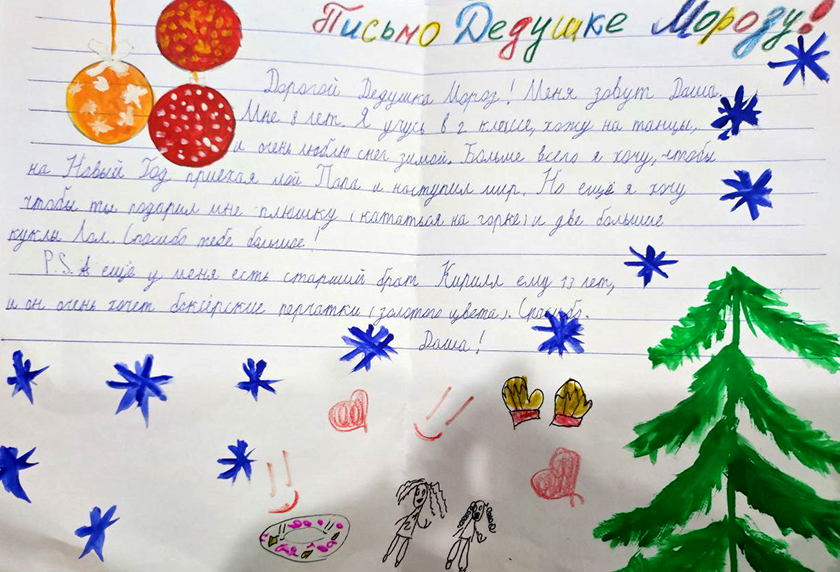 Письмо Дедушке Морозу!
Дорогой Дедушка Мороз! Меня зовут Даша.
Мне 8 лет. Я учусь в 2 классе, хожу на танцы,
и очень люблю снег зимой. Больше всего я хочу, чтобы
на Новый Год приехал мой Папа и наступил мир. Но ещё я хочу
чтобы ты подарил мне плюшку (кататься на горке) и две большие
куклы Лол. Спасибо тебе большое!
P.S. А ещё у меня есть старший брат Кирилл ему 13 лет,
и он очень хочет боксёрские перчатки (золотого цвета). Спасибо.
Даша!